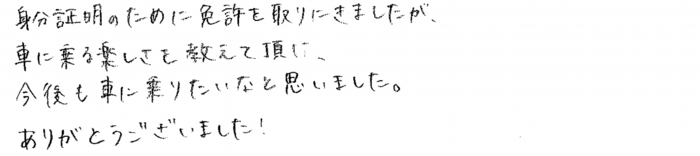 身分証明のために免許を取りにきましたが、
車に乗る楽しさを教えて頂け、
今後も車に乗りたいなと思いました。
ありがとうございました!